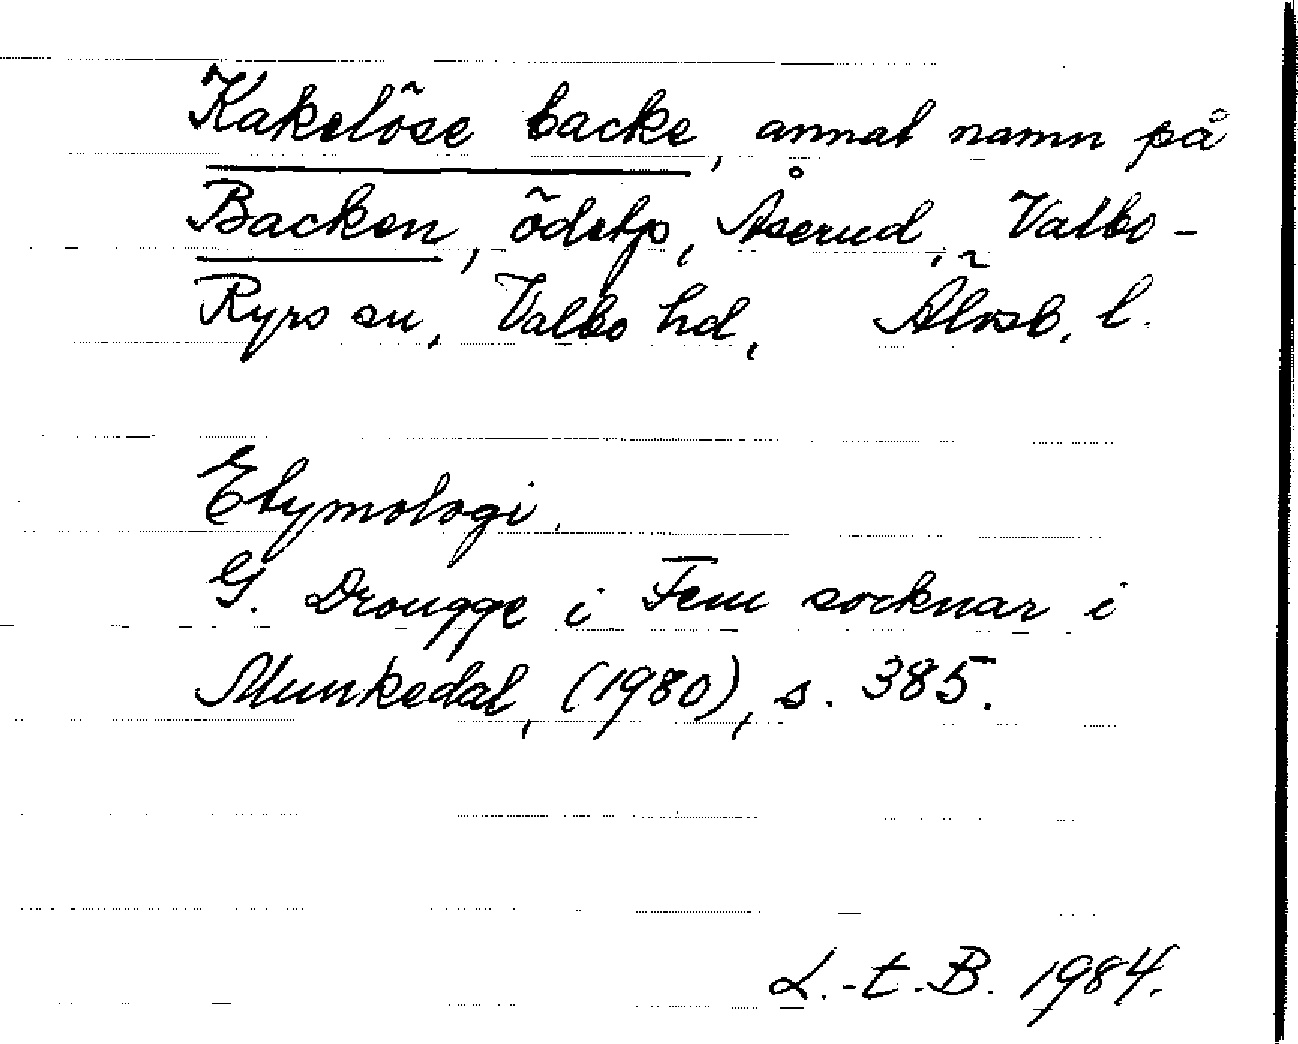 Kakelöse backe, annat namn på
Backen, ödetp, Åserud, Valbo-
Ryrs sn, Valbo hd, Älvsb. l.
Etymologi.
G. Drougge i Fem socknar i
Munkedal, (1980), s. 385.
L.-t.-B. 1984.